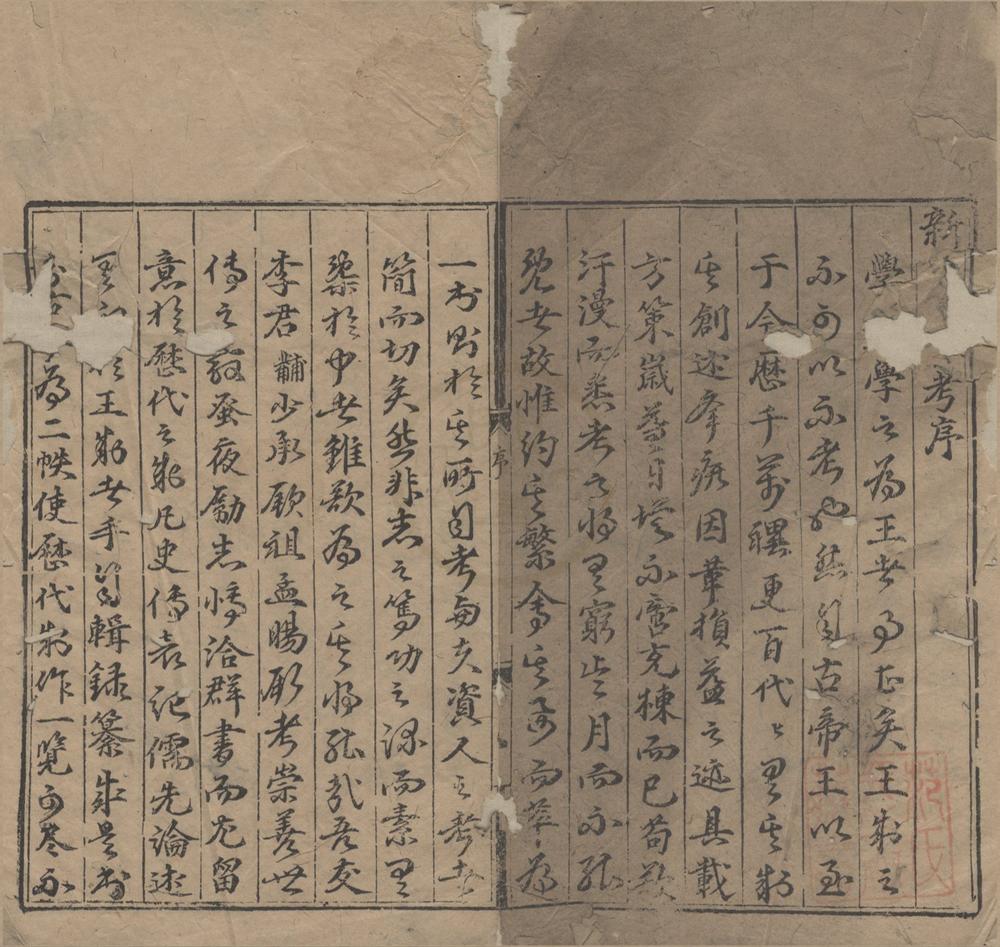 新考序
學學之為王者事尚矣王制之
不可以不考也然自古帝王以至
于今歷千萬禩更百代代異其制
其創述率循因革損益之迹具載
方策歲答月增不啻充棟而已苟欲
汗漫而悉考之將見窮年月而不能
究者故惟約其繁會其要而萃為
一書則於其所自考與夫資人之考者
簡而切矣然非志之篤功之深而素有
蘊於中者雖欲為之其將能哉吾友
李君黼少承厥祖孟暘形考崇善世
傳之教蚤夜勵志博洽群書而尤留
意於歷代之制凡史傳表記儒先論述
有以王制者手自輯録纂成是書
為二帙使歷代制作一覽可盡而
序